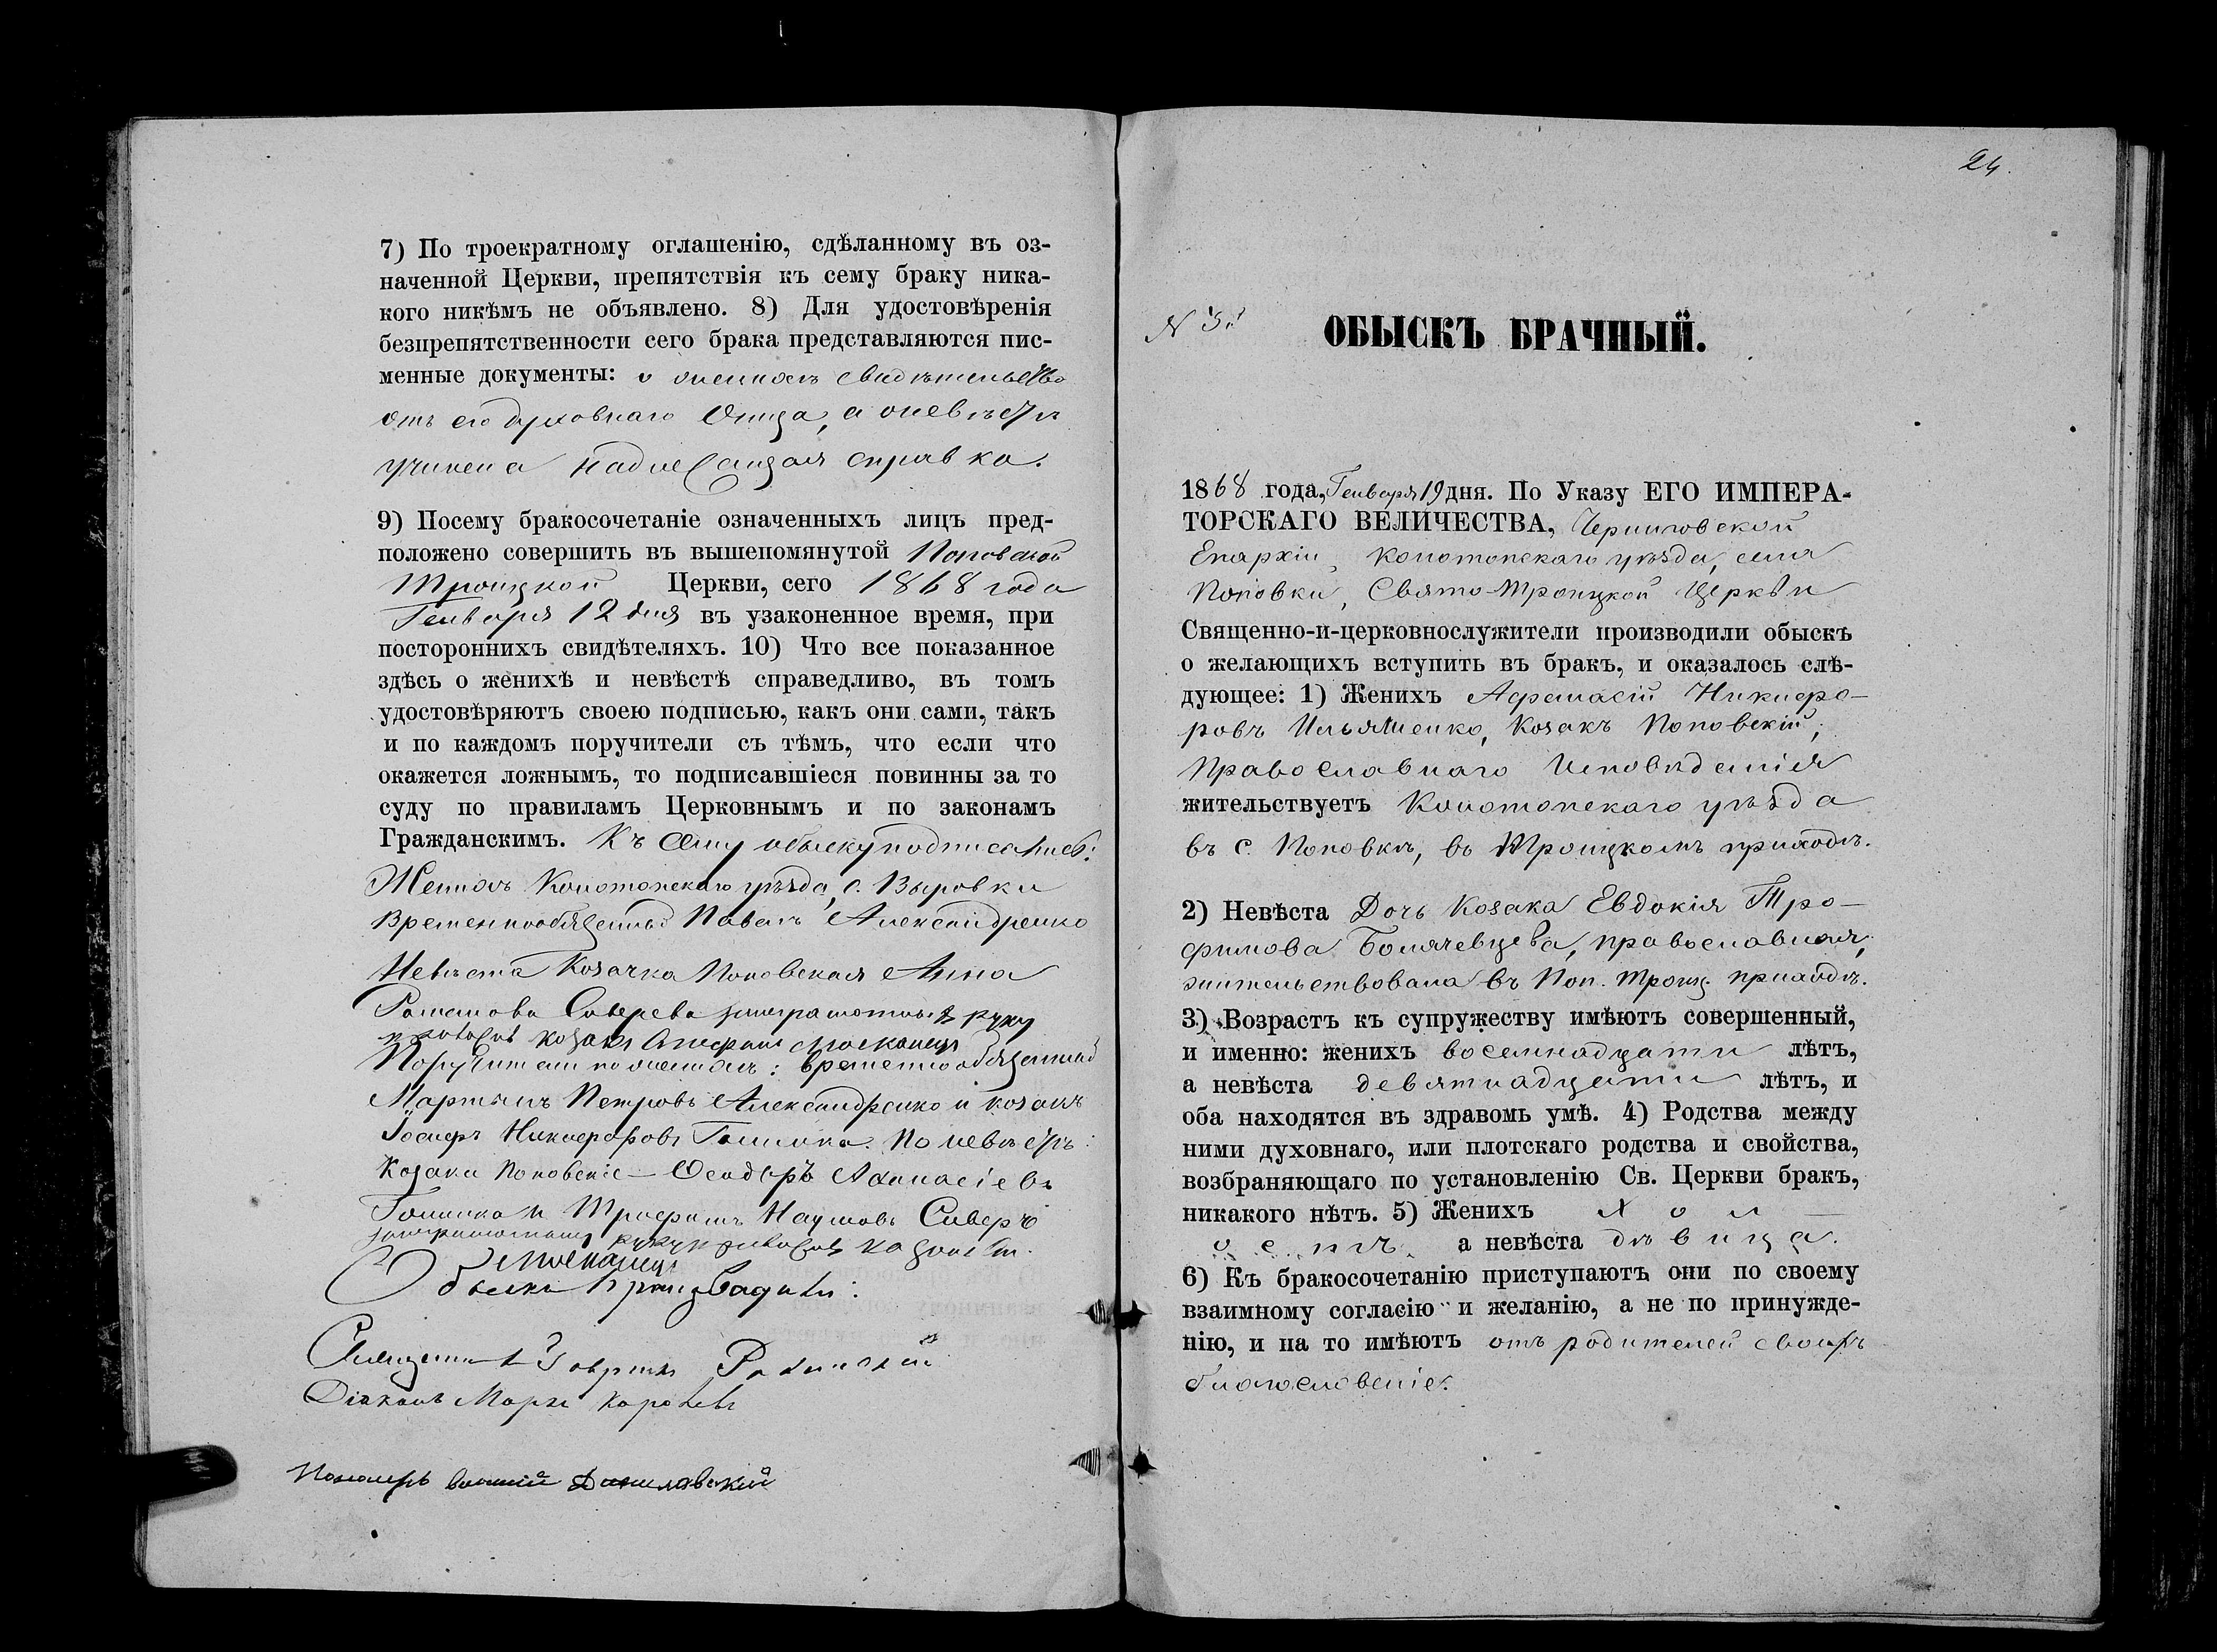 7) По троекратному оглашенію, сдѣланному въ оз-
наченной Церкви, препятствія къ сему браку ника-
кого никѣмъ не объявлено. 8) Для удостовѣренія
безпрепятственности сего брака представляются пис-
менные документы: о женихѣ свидѣтельство
отъ его духовнаго Отца, а о невѣстѣ
учинена надлежащая справка.
9) Посему бракосочетаніе означенныхъ лицъ пред-
положено совершить въ вышепомянутой Поповской
Троицкой Церкви, сего 1868 года
Генваря 12 дня въ узаконенное время, при
постороннихъ свидѣтеляхъ. 10) Что все показанное
здѣсь о женихѣ и невѣстѣ справедливо, въ томъ
удостовѣряютъ своею подписью, какъ они сами, такъ
и по каждомъ поручители съ тѣмъ, что если что
окажется ложнымъ, то подписавшіеся повинны за то
суду по правиламъ Церковнымъ и по законамъ
Гражданскимъ. Къ сему обыску подписались:
Женихъ Конотопскаго уѣзда, с. Выровки
Временнообязанный Павелъ Александренко
Невѣста Козачка Поповская Анна
Романова Северева неграмотныя руку
козакъ
Поручители по женихѣ: временнообязанный
Мартинъ Петровъ Александренко и козакъ
Іосифъ Никифоровъ Галинка. По невѣстѣ:
Козаки Поповскіе — Ѳеодоръ Аѳанасіевъ
Галинка и Трифонъ Наумовъ Сиверъ
Обыскъ производили:
Священникъ
Діаконъ Маркъ Королевъ
Пономарь Даниловскій
24.
N 3й
ОБЫСКЪ БРАЧНЫЙ.
1868 года, Генваря 19 дня. По Указу ЕГО ИМПЕРА-
ТОРСКАГО ВЕЛИЧЕСТВА, Черниговской
Епархіи, Конотопскаго уѣзда, села
Поповки, Свято-Троицкой Церкви
Священно-и-церковнослужители производили обыскъ
о желающихъ вступить въ бракъ, и оказалось слѣ-
дующее: 1) Женихъ Афанасій Никифо-
ровъ Ильяшенко, Козакъ Поповскій,
Православнаго Исповѣданія
жительствуетъ Конотопскаго уѣзда
въ с. Поповкѣ, въ Троицкомъ приходѣ.
2) Невѣста Дочь Козака Евдокія Тро-
фимова православная,
жительствовала въ Поп. Троиц. приходѣ.
3) Возрастъ къ супружеству имѣютъ совершенный,
и именно: женихъ восемнадцати лѣтъ,
а невѣста девятнадцати лѣтъ, и
оба находятся въ здравомъ умѣ. 4) Родства между
ними духовнаго, или плотскаго родства и свойства,
возбраняющаго по установленію Св. Церкви бракъ,
никакого нѣтъ. 5) Женихъ Хол —
остъ, а невѣста дѣвица.
6) Къ бракосочетанію приступаютъ они по своему
взаимному согласію и желанію, а не по принужде-
нію, и на то имѣютъ отъ родителей своихъ
благословеніе.